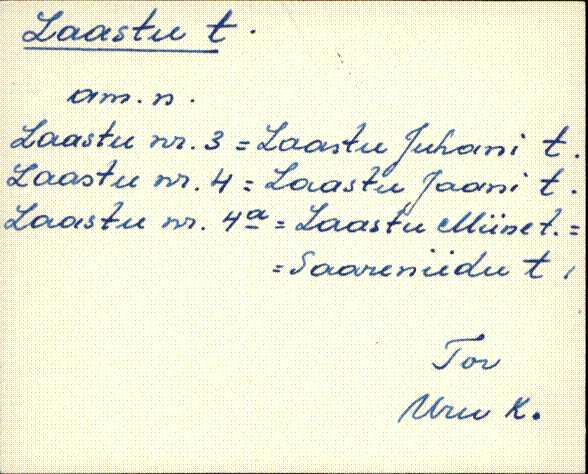 Laastu t.
am. n.
Laastu nr. 3 = Laastu Juhani t.
Laastu nr. 4 = Laastu Jaani t.
Laastu nr. 4a = Laastu Miine t. =
= Saareniidu t.
Tor
Uru K.